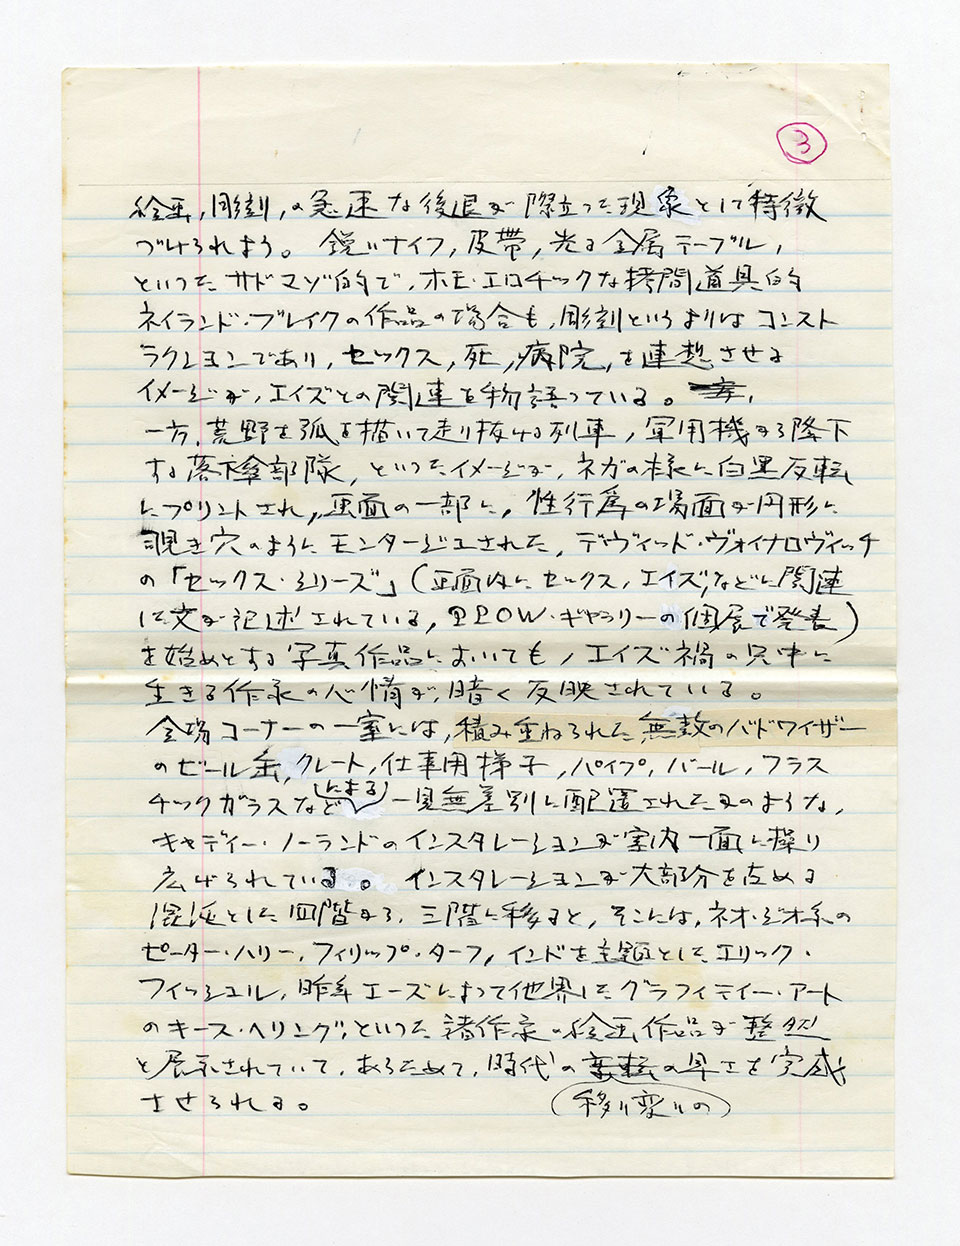 3
絵画，彫刻，の急速な後退が際立った現象として特徴
づけられよう。 鋭いナイフ，皮帯，光る金属テーブル，
といったサドマゾ的で，ホモ・エロチックな拷問道具的
ネイランド・ブレイクの作品の場合も，彫刻というよりはコンスト
ラクションであり，セックス，死，病院，を連想させる
イメージが，エイズとの関連を物語っている。
一方，荒野を弧を描いて走り抜ける列車，軍用機から降下
する落下傘部隊，といったイメージが，ネガの様に白黒反転
にプリントされ，画面の一部に，性行為の場面が円形に
覗き穴のようにモンタージュされた，デヴィッド・ヴォイナロヴィッチ
の「セックス・シリーズ」（画面内にセックス，エイズ，などに関連
した文が記述されている，PPOW・ギャラリーの個展で発表）
を始めとする写真作品においても，エイズ禍の只中に
生きる作家の心情が，暗く反映されている。
会場コーナーの一室には，積み重ねられた，無数のバドワイザー
のビール缶，クレート，仕事用梯子，パイプ，バール，プラス
チックガラスなどによる一見無差別に配置されたかのような，
キャディー・ノーランドのインスタレーションが室内一面に繰り
広げられている。 インスタレーションが大部分を占める
混沌とした四階から，三階に移ると，そこには，ネオ・ジオ系の
ピーター・ハリー，フィリップ・ターフ，インドを主題としたエリック・
フィッシュル，昨年エーズによって他界したグラフィティー・アート
のキース・ヘリング，といった諸作家の絵画作品が整然
と展示されていて，あらためて，時代の変転の早さを実感
させられる。 （移り変りの）